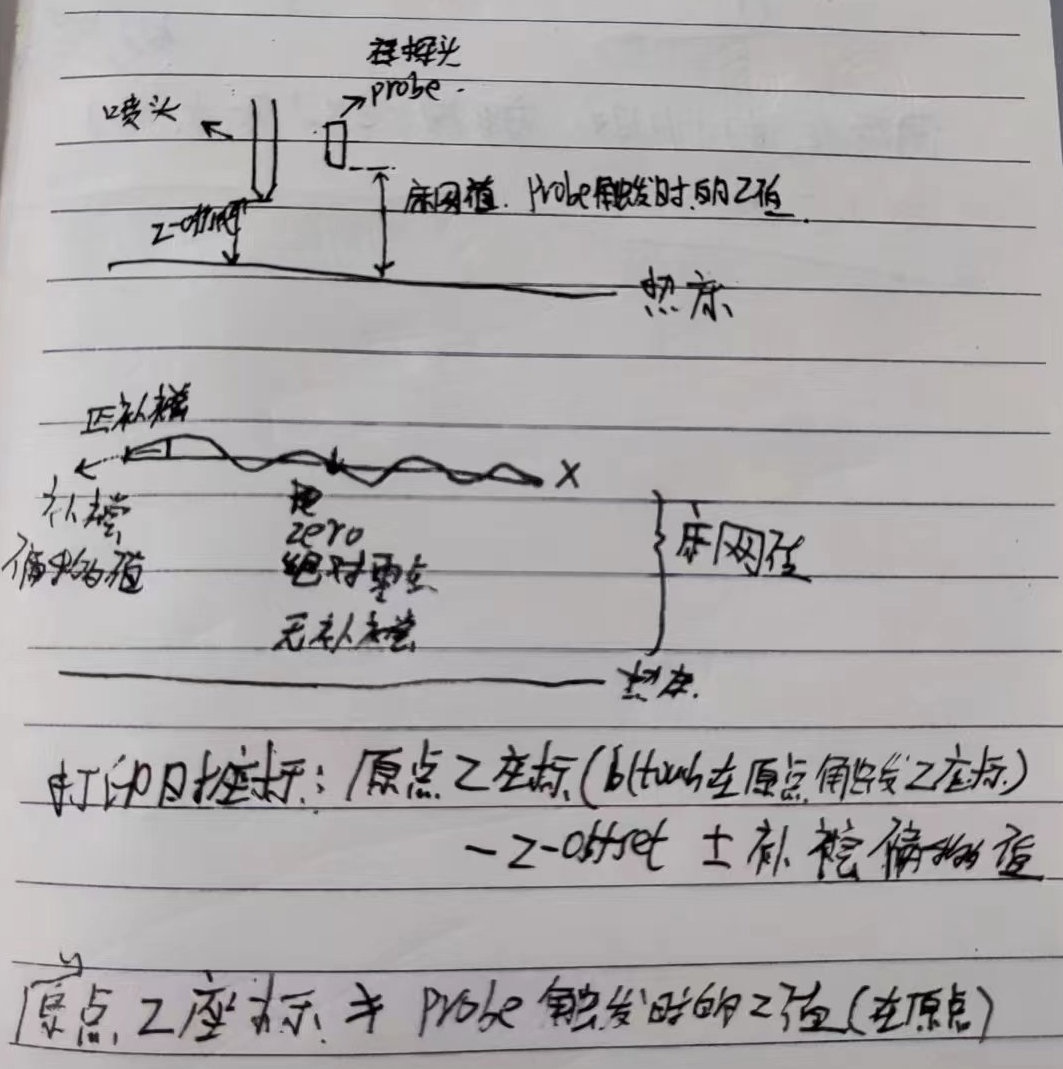 探头
probe.
喷头
Z-offset
床网值. Probe触发时的Z值
热床
正补偿
X
补偿
偏移的值
zero
绝对零点
无补偿
床网值
热床.
打印时坐标: 原点Z座标(bltouch在原点触发Z座标)
-Z-offset ± 补偿偏移的值
原点Z座标 probe触发时的Z值(在原点)